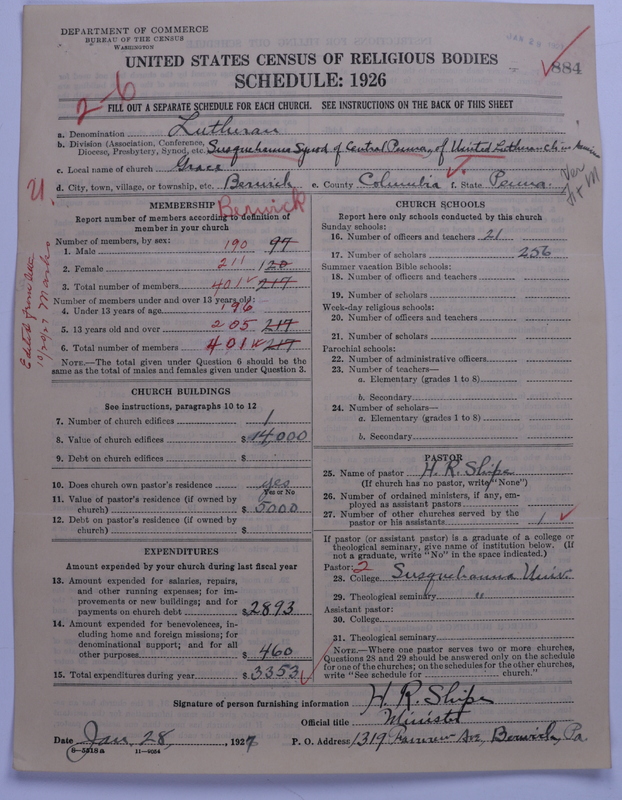 DEPARTMENT OF COMMERCE
BUREAU OF THE CENSUS
WASHINGTON
UNITED STATES CENSUS OF RELIGIOUS BODIES
SCHEDULE: 1926
884
2-6
FILL OUT A SEPARATE SCHEDULE FOR EACH CHURCH. SEE INSTRUCTIONS ON THE BACK OF THIS SHEET
a. Denomination Lutheran
b. Division (Association, Conference, Diocese, Presbytery, Synod, etc. Susquehanna Synod of Central Penna. of United Lutheran ch in America
c. Local name of church Grace
d. City, town, village, or township, etc. Berwick e. County Columbia f. State Penna.
Berwick
MEMBERSHIP
Report number of members according to definition of
member in your church
Number of members, by sex:
1. Male 190 97
2. Female 211 120
3. Total number of members 401 217
Number of members under and over 13 years old:
4. Under 13 years of age 196
5. 13 years old and over 205 217
6. Total number of members 401 217
NOTE.—The total given under Question 6 should be
the same as the total of males and females given under Question 3.
CHURCH BUILDINGS
See instructions, paragraphs 10 to 12
7. Number of church edifices 1
8. Value of church edifices $14000
9. Debt on church edifices $
10. Does church own pastor's residence yes
Yes or No
11. Value of pastor's residence (if owned by
church) $5000
12. Debt on pastor's residence (if owned by
church) $
EXPENDITURES
Amount expended by your church during last fiscal year
13. Amount expended for salaries, repairs,
and other running expenses; for im-
provements or new buildings; and for
payments on church debt $2893
14. Amount expended for benevolences, in-
cluding home and foreign missions; for
denominational support; and for all
other purposes $460
15. Total expenditures during year $3353
CHURCH SCHOOLS
Report here only schools conducted by this church
Sunday schools:
16. Number of officers and teachers 21
17. Number of scholars 256
Summer vacation Bible schools:
18. Number of officers and teachers
19. Number of scholars
Week-day religious schools:
20. Number of officers and teachers
21. Number of scholars
Parochial schools:
22. Number of administrative officers
23. Number of teachers—
a. Elementary (grades 1 to 8)
b. Secondary
24. Number of scholars—
a. Elementary (grades 1 to 8)
b. Secondary
PASTOR
25. Name of pastor H. R. Shipe
(If church has no pastor, write "None")
26. Number of ordained ministers, if any, em-
ployed as assistant pastors
27. Number of other churches served by the
pastor or his assistants 1
If pastor (or assistant pastor) is a graduate of a college or
theological seminary, give name of institution below. (If
not a graduate, write "No" in the space indicated.)
Pastor: 2
28. College Susquehanna Univ.
29. Theological seminary "
Assistant pastor:
30. College
31. Theological seminary
NOTE.—Where one pastor serves two or more churches,
Questions 28 and 29 should be answered only on the schedule
for one of the churches; on the schedules for the other churches,
write "See schedule for church."
Signature of person furnishing information H. R. Shipe
Official title Minister
Date Jan. 28, 1927 P. O. Address 1319 Ave, Berwick, Pa
8-5318a 11-9064